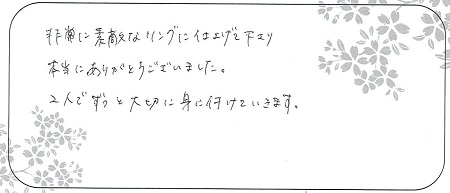 非常に素敵なリングに仕上げて下さり
本当にありがとうございました。
2人でずっと大切に身に付けていきます。